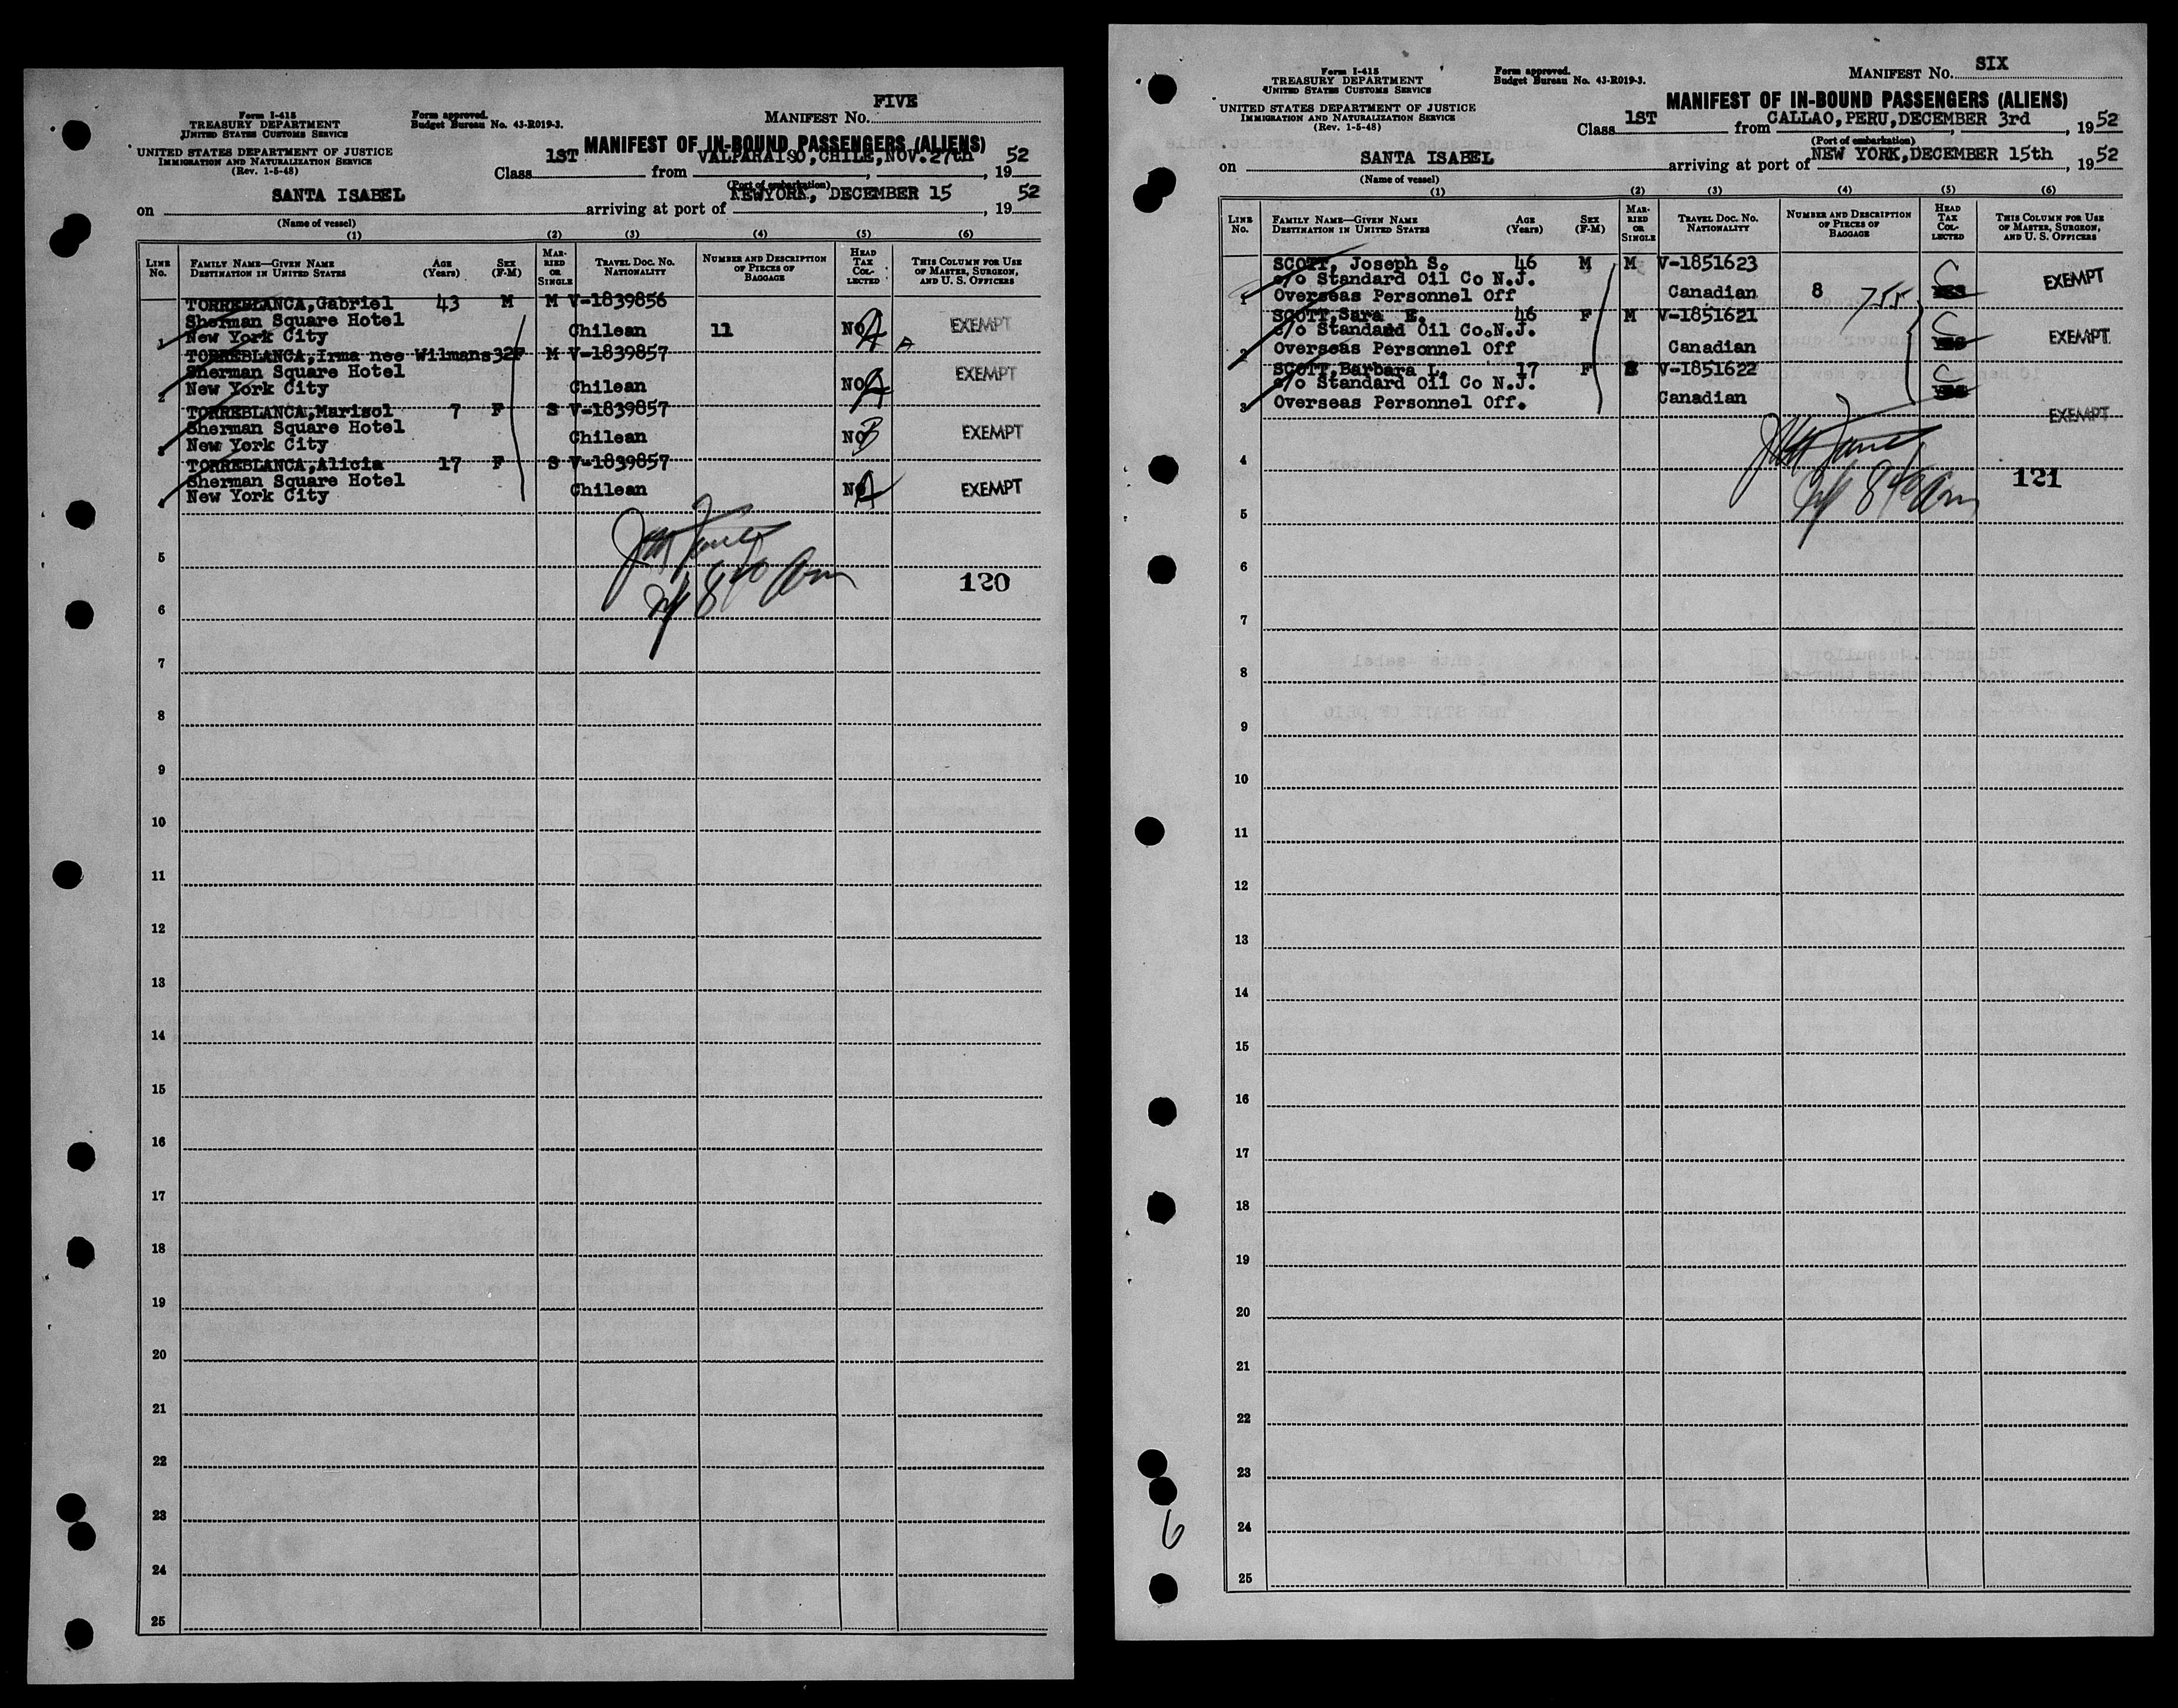 FIVE
Form I-415
TREASURY DEPARTMENT
UNITED STATES CUSTOMS SERVICE
Form approved.
Budget Bureau No. 43-R019-3.
MANIFEST No.
UNITED STATES DEPARTMENT OF JUSTICE
IMMIGRATION AND NATURALIZATION SERVICE
(Rev. 1-5-48)
MANIFEST OF IN-BOUND PASSENGERS (ALIENS)
Class 1ST from VALPARAISO, CHILE, NOV. 27th, 1952
(Port of embarkation)
on SANTA ISABEL arriving at port of NEWYORK, DECEMBER 15, 1952
(Name of vessel)
(1) (2) (3) (4) (5) (6)
LINE No.
FAMILY NAME—GIVEN NAME
DESTINATION IN UNITED STATES
AGE (Years)
SEX (F-M)
MARRIED OR SINGLE
TRAVEL DOC. No.
NATIONALITY
NUMBER AND DESCRIPTION OF PIECES OF BAGGAGE
HEAD TAX COLLECTED
THIS COLUMN FOR USE OF MASTER, SURGEON, AND U. S. OFFICERS
TORREBLANCA,Gabriel 43 M M V-1839856
Sherman Square Hotel
1 New York City Chilean 11 NO A EXEMPT
TORREBLANCA,Irma nee Wilmans 32F M V-1839857
Sherman Square Hotel
2 New York City Chilean NO A EXEMPT
TORREBLANCA,Marisol 7 F S V-1839857
Sherman Square Hotel
3 New York City Chilean NO B EXEMPT
TORREBLANCA,Alicia 17 F S V-1839857
Sherman Square Hotel
4 New York City Chilean NO A EXEMPT
5
6 120
7
8
9
10
11
12
13
14
15
16
17
18
19
20
21
22
23
24
25
SIX
Form I-415
TREASURY DEPARTMENT
UNITED STATES CUSTOMS SERVICE
Form approved.
Budget Bureau No. 43-R019-3.
MANIFEST No.
UNITED STATES DEPARTMENT OF JUSTICE
IMMIGRATION AND NATURALIZATION SERVICE
(Rev. 1-5-48)
MANIFEST OF IN-BOUND PASSENGERS (ALIENS)
Class 1ST from CALLAO, PERU, DECEMBER 3rd, 1952
(Port of embarkation)
on SANTA ISABEL arriving at port of NEW YORK, DECEMBER 15th, 1952
(Name of vessel)
(1) (2) (3) (4) (5) (6)
LINE No.
FAMILY NAME—GIVEN NAME
DESTINATION IN UNITED STATES
AGE (Years)
SEX (F-M)
MARRIED OR SINGLE
TRAVEL DOC. No.
NATIONALITY
NUMBER AND DESCRIPTION OF PIECES OF BAGGAGE
HEAD TAX COLLECTED
THIS COLUMN FOR USE OF MASTER, SURGEON, AND U. S. OFFICERS
SCOTT, Joseph S. 46 M M V-1851623
c/o Standard Oil Co N.J.
1 Overseas Personnel Off Canadian 8 755 C YES EXEMPT
SCOTT,Sara E. 46 F M V-1851621
c/o Standard Oil Co.N.J.
2 Overseas Personnel Off Canadian C YES EXEMPT
SCOTT,Barbara L. 17 F S V-1851622
c/o Standard Oil Co N.J.
3 Overseas Personnel Off. Canadian C YES EXEMPT
4 121
5
6
7
8
9
10
11
12
13
14
15
16
17
18
19
20
21
22
23
24
25
6